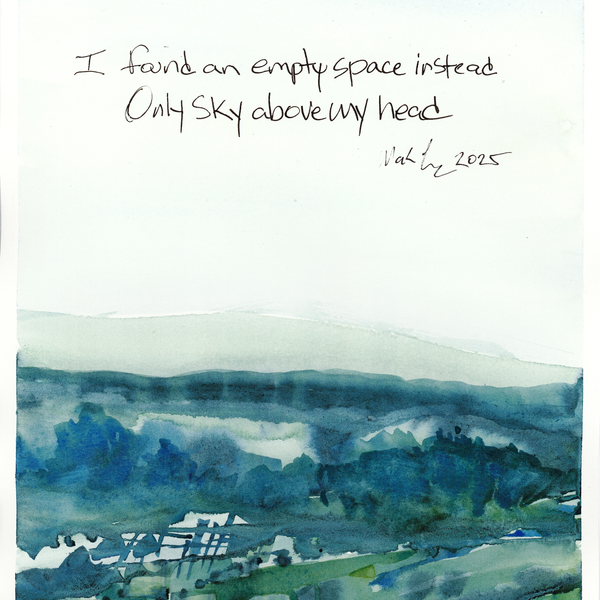 I found an empty space instead
Only Sky above my head
2025